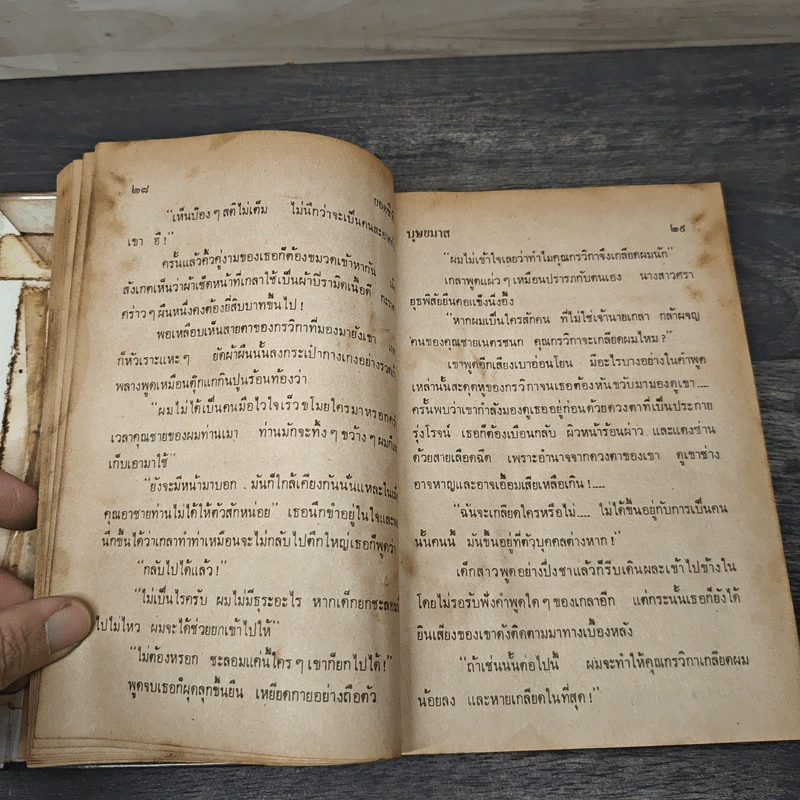 ๒๘
"เห็นบ๊อง ๆ สติไม่เต็ม ไม่นึกว่าจะเป็นคนสะ
เขา อี๋ !"
ครั้นแล้วคิ้วคู่งามของเธอก็ต้องขมวดเข้าหากัน
สังเกตเห็นว่าผ้าเช็ดหน้าที่เกลาใช้เป็นผ้าบีรามิดเนื้อดี
คร่าว ๆ ผืนหนึ่งคงต้องยี่สิบบาทขึ้นไป !
พอเหลือบเห็นสายตาของกรวิกาที่มองมายังเขา
ก็หัวเราะแหะ ๆ ยัดผ้าผืนนั้นลงกระเป๋ากางเกงอย่างรวดเร็ว
พลางพูดเหมือนตุ๊กแกกินปูนร้อนท้องว่า
"ผมไม่ได้เป็นคนมือไวใจเร็วขโมยใครมาหรอกครับ
เวลาคุณชายของผมท่านเมา ท่านมักจะทิ้ง ๆ ขว้าง ๆ ผมก็เลย
เก็บเอามาใช้"
"ยังจะมีหน้ามาบอก . มันก็ใกล้เคียงกันนั่นแหละในเมื่อ
คุณอาชายท่านไม่ได้ให้ตัวสักหน่อย" เธอนึกขำอยู่ในใจและพอ
นึกขึ้นได้ว่าเกลาทำท่าเหมือนจะไม่กลับไปตึกใหญ่เธอก็พูดว่า
"กลับไปได้แล้ว !"
"ไม่เป็นไรครับ ผมไม่มีธุระอะไร หากเด็กยกชะลอม
ไปไม่ไหว ผมจะได้ช่วยยกเข้าไปให้"
"ไม่ต้องหรอก ชะลอมแค่นี้ใคร ๆ เขาก็ยกไปได้ !"
พูดจบเธอก็ผุดลุกขึ้นยืน เหยียดกายอย่างถือตัว
บุษยมาส ๒๙
"ผมไม่เข้าใจเลยว่าทำไมคุณกรวิกาจึงเกลียดผมนัก"
เกลาพูดแผ่ว ๆ เหมือนปรารภกับตนเอง นางสาวศรา
ยุธพิสัยยืนคอแข็งนิ่งอึ้ง
"หากผมเป็นใครสักคน ที่ไม่ใช่เจ้านายเกลา กล้าผจญ
คนของคุณชายเนตรชนก คุณกรวิกาจะเกลียดผมไหม ?"
เขาพูดอีกเสียงเบาอ่อนโยน มีอะไรบางอย่างในคำพูด
เหล่านั้นสะดุดหูของกรวิกาจนเธอต้องหันขวับมามองดูเขา....
ครั้นพบว่าเขากำลังมองดูเธออยู่ก่อนด้วยดวงตาที่เป็นประกาย
รุ่งโรจน์ เธอก็ต้องเบือนกลับ ผิวหน้าร้อนผ่าว และแดงซ่าน
ด้วยสายเลือดฉีด เพราะอำนาจจากดวงตาของเขา ดูเขาช่าง
อาจหาญและอาจเอื้อมเสียเหลือเกิน !....
"ฉันจะเกลียดใครหรือไม่.... ไม่ได้ขึ้นอยู่กับการเป็นคน
นั้นคนนี้ มันขึ้นอยู่ที่ตัวบุคคลต่างหาก !"
เด็กสาวพูดอย่างปึ่งชาแล้วก็รีบเดินผละเข้าไปข้างใน
โดยไม่รอรับฟังคำพูดใด ๆ ของเกลาอีก แต่กระนั้นเธอก็ยังได้
ยินเสียงของเขาดังติดตามมาทางเบื้องหลัง
"ถ้าเช่นนั้นต่อไปนี้ ผมจะทำให้คุณกรวิกาเกลียดผม
น้อยลง และหายเกลียดในที่สุด !"